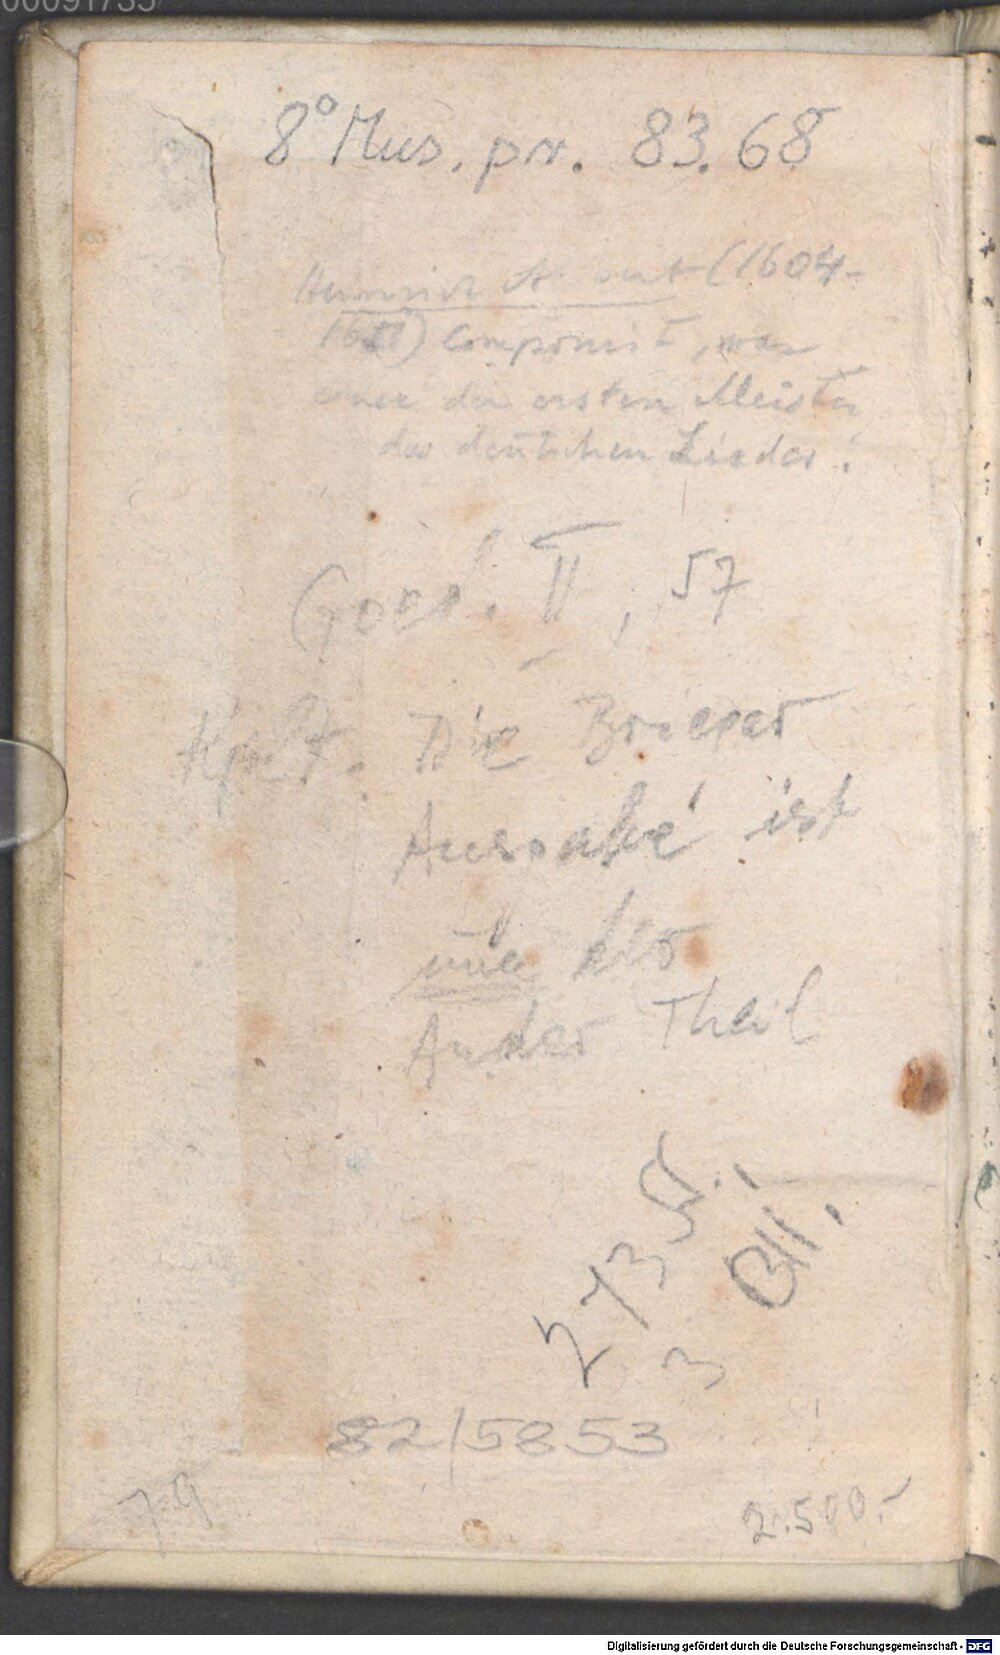 00091735
8° Mus. pr. 83.68
Heinrich Albert (1604-
1651) Componist, war
einer der ersten Meister
des deutschen Liedes!
Goed. II, 57
Die Brieger
Ausgabe ist
der
Ander Theil
82/5853
79
2.500.-
Digitalisierung gefördert durch die Deutsche Forschungsgemeinschaft - DFG